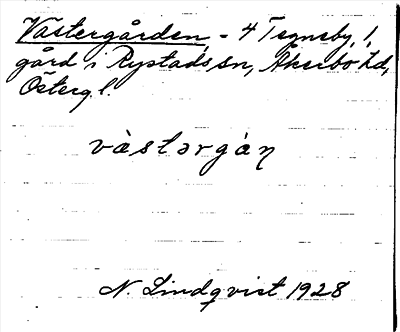 Västergården, - 4 Tegneby 1,
gård i Rystads sn, Åkerbo hd,
Östergl.
vàstərgáɳ
N. Lindqvist 1928